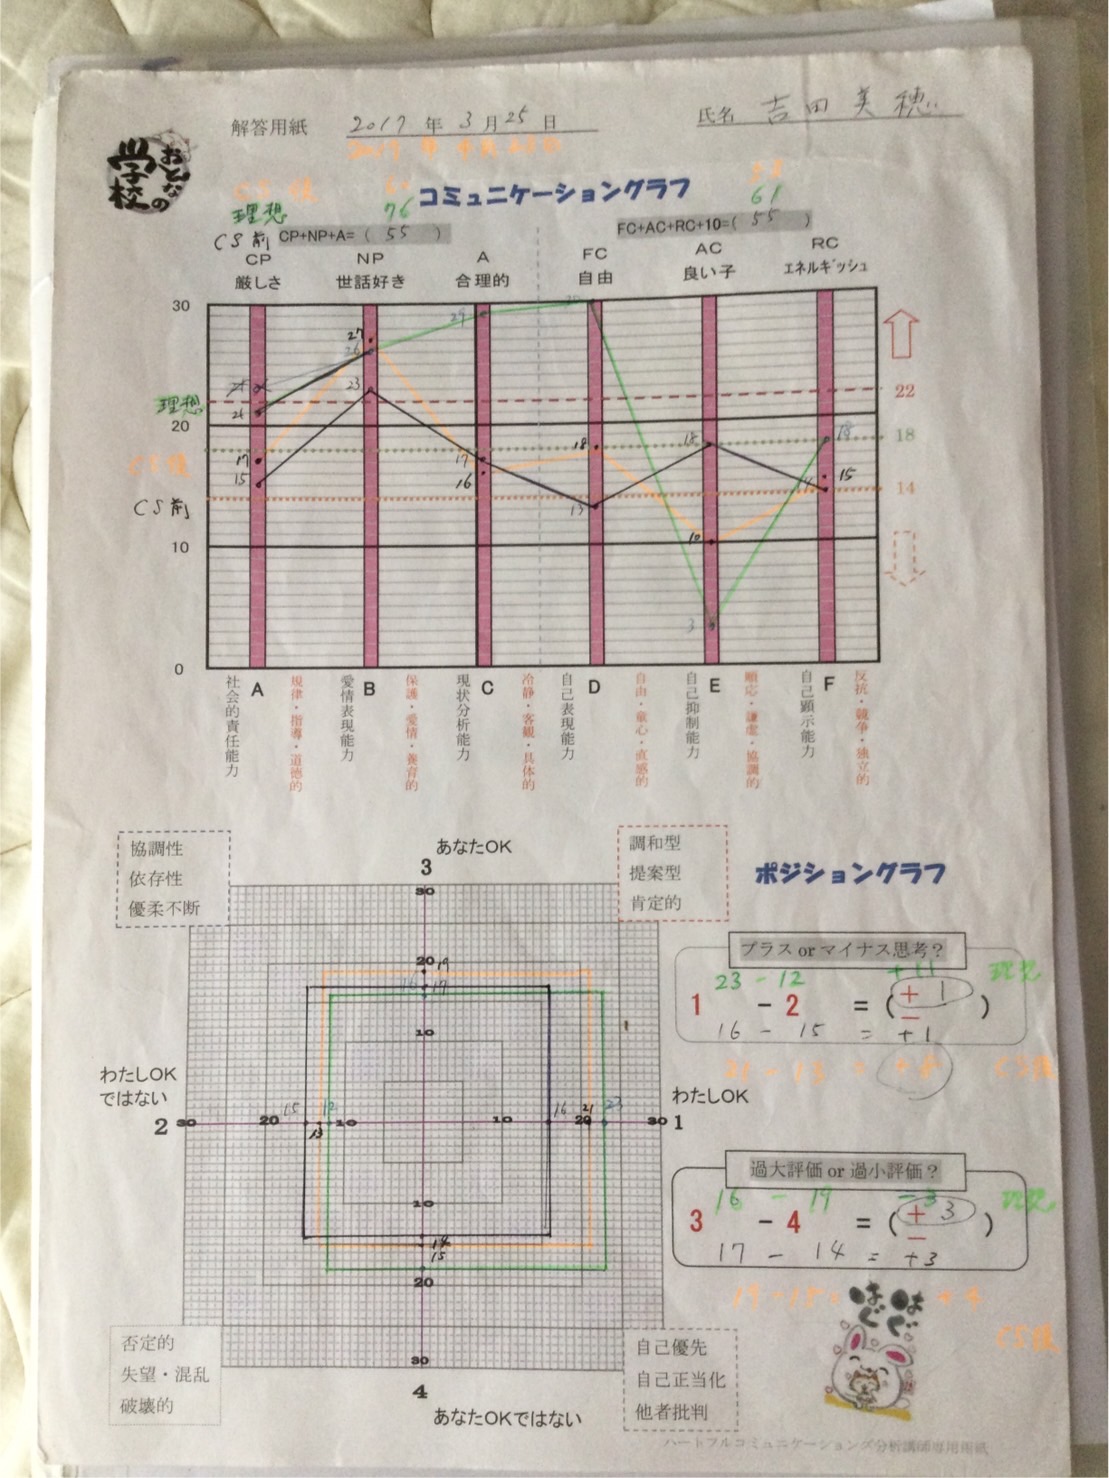 解答用紙 2017 年 3 月 25 日 氏名 吉田美穂
おとなの学校
コミュニケーショングラフ
理想 76 61
CS前 CP+NP+A=( 55 ) FC+AC+RC+10=( 55 )
CP NP A FC AC RC
厳しさ 世話好き 合理的 自由 良い子 エネルギッシュ
30
29
27
26
23
理想 21 22
20
18 18 18 18
CS後 17 17
15 16 15
14 14
CS前 13
10 10
3
0
A B C D E F
社会的責任能力
規律・指導・道徳的
愛情表現能力
保護・愛情・養育的
現状分析能力
冷静・客観・具体的
自己表現能力
自由・童心・直感的
自己抑制能力
順応・謙虚・協調的
自己顕示能力
反抗・競争・独立的
協調性
依存性
優柔不断
あなたOK
3
調和型
提案型
肯定的
ポジショングラフ
30
20 19
16 17
10
わたしOKではない
2 30 20 15 13 12 10
10 16 20 21 23 30 1
わたしOK
10
14
15
20
30
4
あなたOKではない
プラス or マイナス思考?
23 - 12 +11 理想
1 - 2 = (± 1 )
16 - 15 = +1
CS後
過大評価 or 過小評価?
16 - 19 -3 理想
3 - 4 = (± 3 )
17 - 14 = +3
CS後
はぐはぐ
否定的
失望・混乱
破壊的
自己優先
自己正当化
他者批判
ハートフルコミュニケーションズ分析講師専用用紙